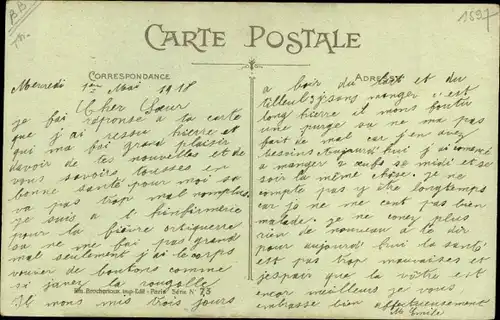 BB
Th.
1697
CARTE POSTALE
CORRESPONDANCE
ADRESSE
Mercredi 1er Mai 1918
Cher Sœur
je fai réponse a ta carte
que j'ai ressu hierre et
qui ma fai grand plaisir
davoir de tes nouvelles et de
vous savoirs tousses en
bonne santé pour moi sa
va pas trop mal non plus
je suis a l'hinfirmerie
pour la fièvre ortiquerre
sa ne me fai pas grand
mal seulement j'ai le corps
couver de boutons comme
si javer la rougolle
Il mons mis trois jours
Imp-Edit - Paris Série N° 73
a boir du lait et du
tilleul sans manger c'est
long hierre il mons foutu
une purge ou ne ma pas
fait de mal car j'en avez
besoins Aujourd'hui j'ai comencé
a manger 2 œufs se midi et se
soir la même chose. Je ne
compte pas y être longtemps
car je ne me cont pas bien
malade. je ne coney plus
rien de nouveau a te dir
pour aujourd'hui la santé
est pas trop mauvaises et
jespair que la vôtre est
encor meilleures je vous
embrasse bien affectueusement
Emile